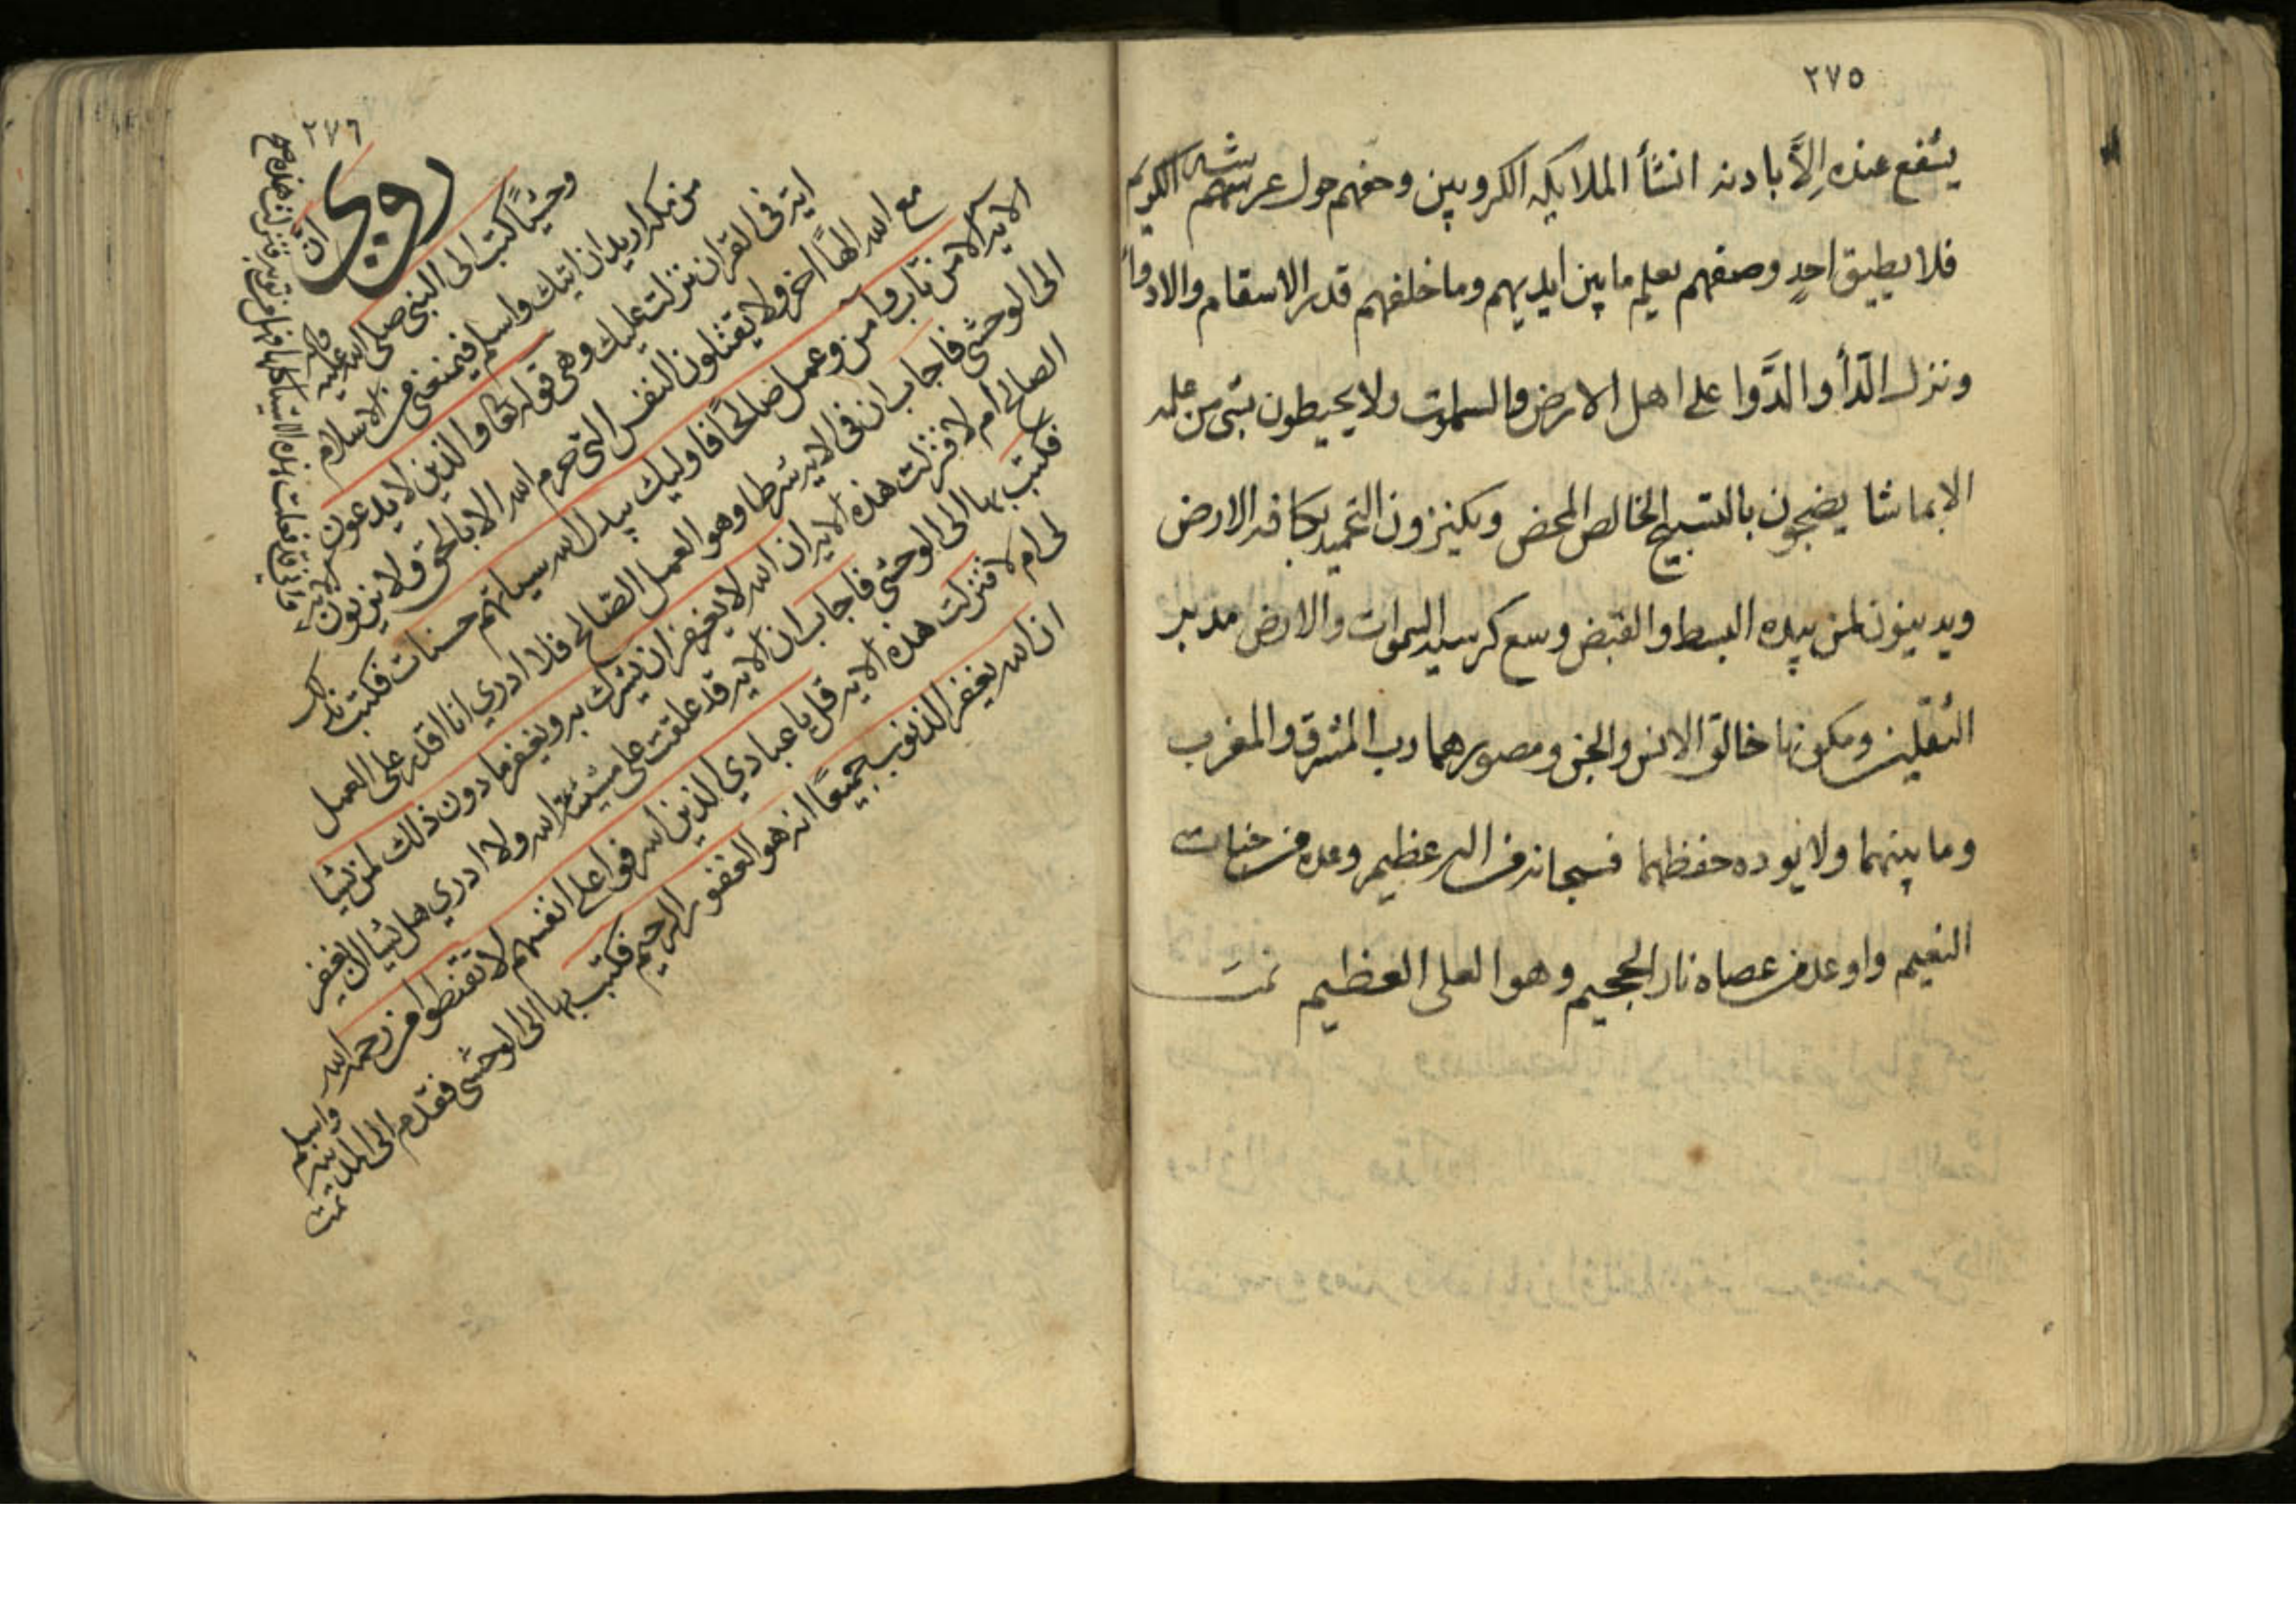 ٢٧٥
يشفع عنده إلاَّ باذنه انشأ الملايكه الكروبين وحفهم حول عرشه الكريم
فلا يطيق احدٍ وصفهم يعلم ما بين ايديهم وما خلفهم قدر الاسقام والادوأ
ونزل الدّأ والدَّوا على اهل الارض والسموت ولا يحيطون بشى من علمه
الا بما شا يضجون بالتسبيح الخالص المحض ويكنزون التحميد بكافه الارض
ويدينون لمن بيده البسط والقبض وسع كرسيه السموات والارض مدبر
الثقلين ومكونها خالق الانس والجن ومصورهما رب المشرق والمغرب
وما بينهما ولا يوده حفظهما فسبحانه من اله عظيم وعد من جنات
النعيم واوعد من عصاه نار الجحيم وهو العلى العظيم تمت
٢٧٦
روي ان
وحشيًّا كتب الى النبى صلى الله عليه وسلم
من مكه اريد ان اتيك واسلم فيمنعنى من الاسلام
ايه فى القران نزلت عليك وهى قوله تعا والذين لا يدعون
مع الله الهًا اخر ولا يقتلون النفس التى حرم الله الا بالحق ولا يزنون
وانى قد فعلت هذه الاشيا كلها فهل من توبه فنزلت هذه
الايه الا من تاب وامن وعمل صالحًا فاوليك يبدل الله سياتهم حسنات فكتب بذلك
الى الوحشى فاجاب ان فى الايه شرطا وهو العمل الصالح فلا ادري انا اقدر على العمل
الصالح ام لا فنزلت هذه الايه ان الله لا يغفر ان يشرك به ويغفر ما دون ذلك لمن يشا
فكتب بها الى الوحشى فاجاب ان الايه قد علقت على مشيئة الله ولا ادري هل يشا ان يغفر
لى ام لا فنزلت هذه الايه قل يا عبادي الذين اسرفوا على انفسهم لا تقنطوا من رحمه الله
ان الله يغفر الذنوب جميعًا انه هو الغفور الرحيم فكتب بها الى الوحشى فقدم الى المدينه واسلم
تمت